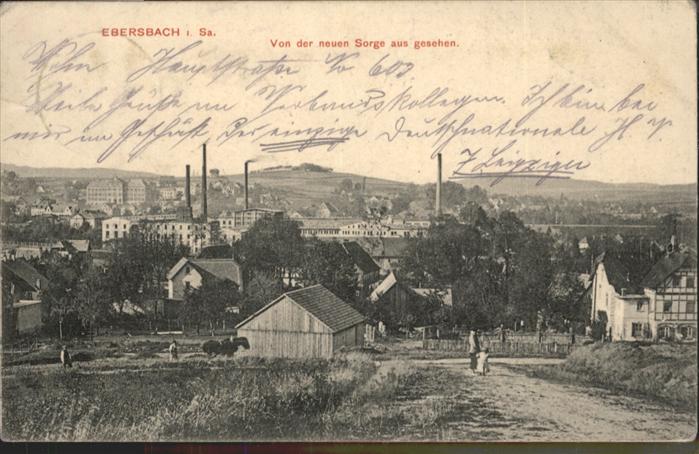 EBERSBACH i. Sa.
Von der neuen Sorge aus gesehen.
Hauptstraße No 603
Verbandskollegen. Ich bin bei
mir im Geschäft der einzige Deutschnationale
7 Leipziger